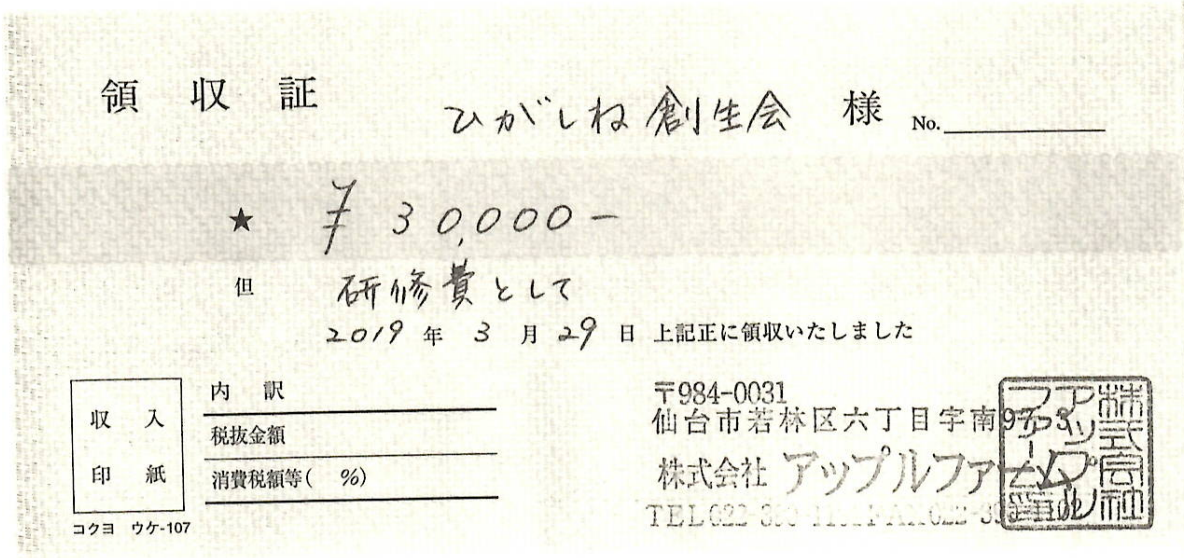 領収証
ひがしね創生会 様 No.
★ ¥30,000-
但 研修費として
2019年3月29日 上記正に領収いたしました
収入
印紙
内訳
税抜金額
消費税額等( %)
コクヨ ウケ-107
〒984-0031
仙台市若林区六丁目字南97-3
株式会社 アップルファーム
TEL022- FAX022-
株式会社
アップル
ファーム